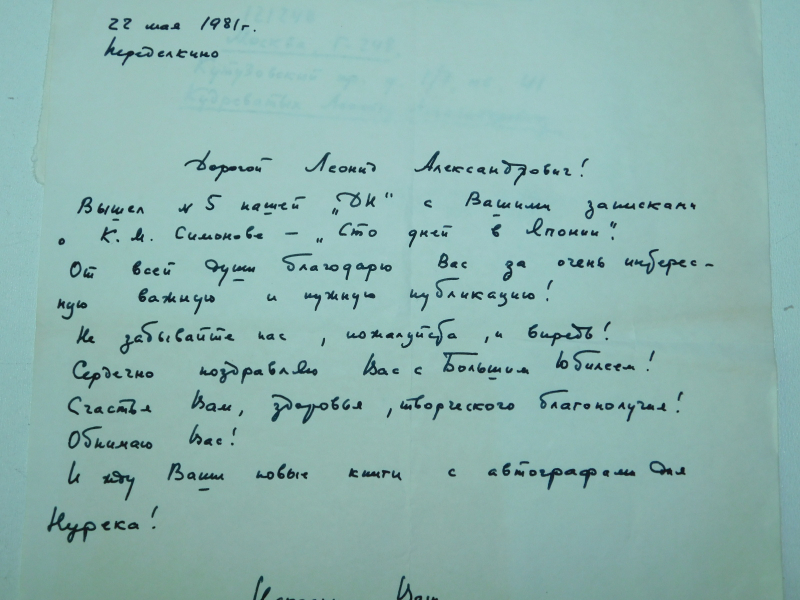 22 мая 1981г.
Переделкино
Дорогой Леонид Александрович!
Вышел № 5 нашей „ДН" с Вашими записками
о К. М. Симонове – „Сто дней в Японии".
От всей души благодарю Вас за очень интерес-
ную важную и нужную публикацию!
Не забывайте нас, пожалуйста, и впредь!
Сердечно поздравляю Вас с Большим Юбилеем!
Счастья Вам, здоровья, творческого благополучия!
Обнимаю Вас!
И жду Ваши новые книги с автографами для
Нурека!
Ваш